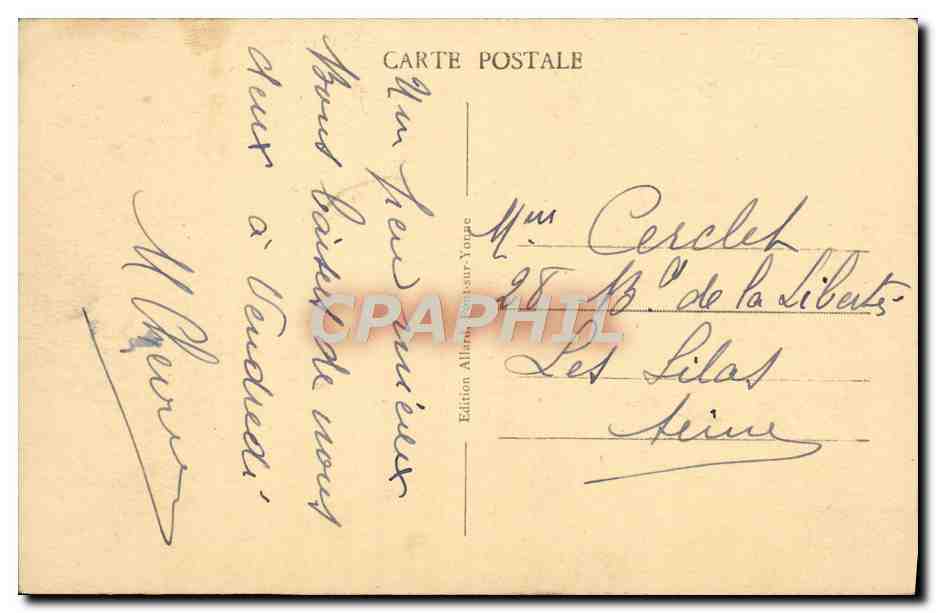 CARTE POSTALE
Un peu mieux
Bons baisers de nous
deux à Vendredi
M
Edition Allard, Pont-sur-Yonne
Mme Cerclet
28 Bd de la Liberté
Les Lilas
Seine
CPAPHIL